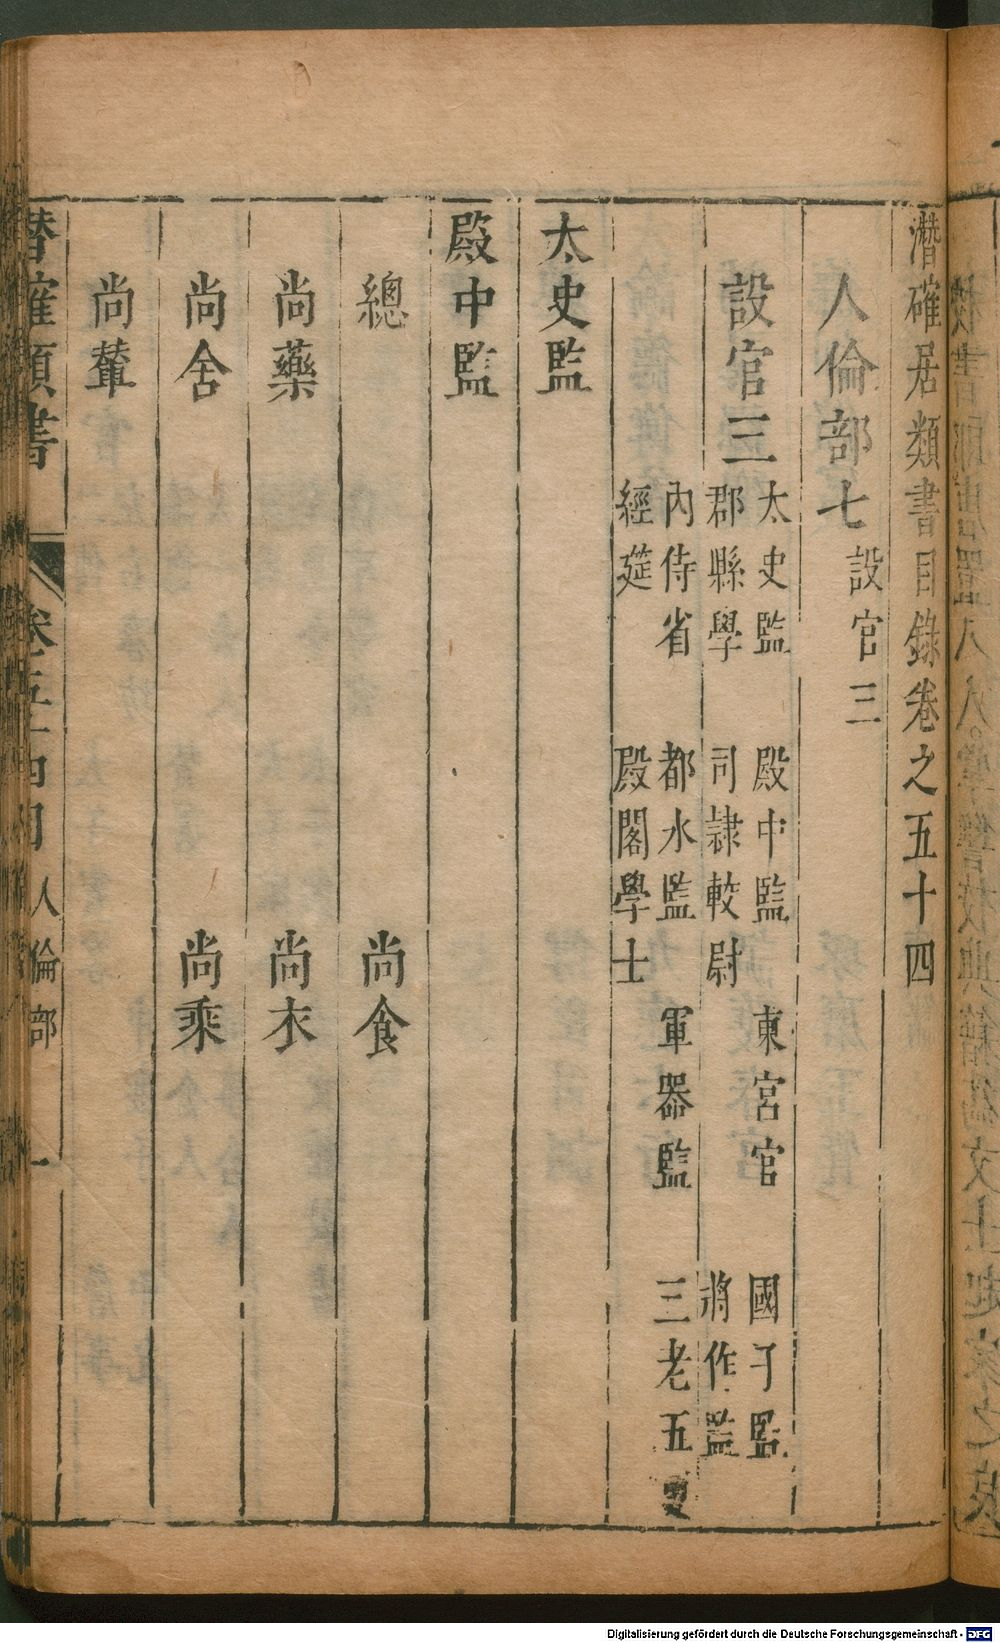 潛確居類書目錄卷之五十四
人倫部七 設官三
設官三
太史監 殿中監 東宮官 國子監
郡縣學 司隷較尉 將作監
內侍省 都水監 軍器監 三老五更
經筵 殿閣學士
太史監
殿中監
總 尚食
尚藥 尚衣
尚舍 尚乘
尚輦
潛確類書 卷五十四目 人倫部 一
Digitalisierung gefördert durch die Deutsche Forschungsgemeinschaft - DFG